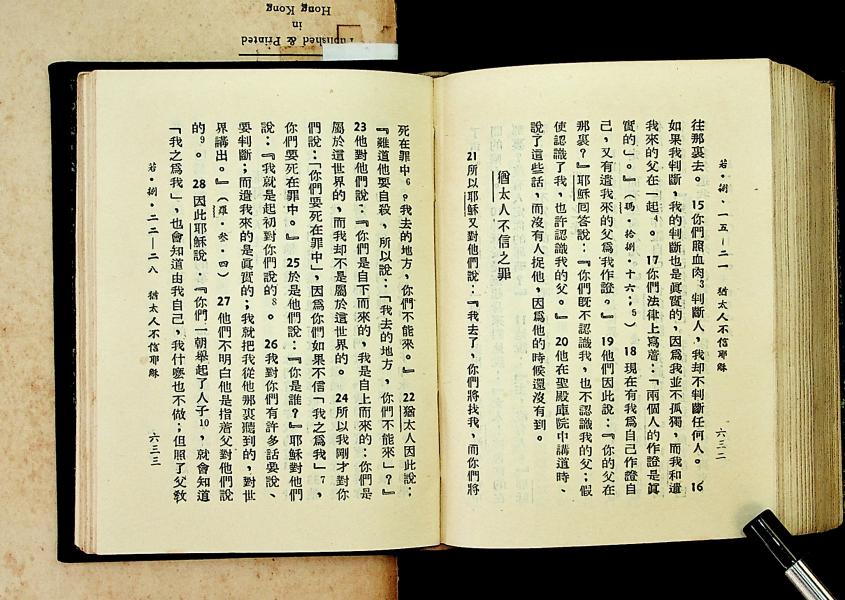 Published & Printed
in
Hong Kong
若·捌·一五—二一 猶太人不信耶穌 六三二
往那裏去。 15 你們照血肉3判斷人,我却不判斷任何人。 16
如果我判斷,我的判斷也是眞實的,因爲我並不孤獨,而我和遣
我來的父在一起4。 17 你們法律上寫着:「兩個人的作證是眞
實的」。』(瑪·拾捌·十六;5) 18 現在有我爲自己作證自
己,又有遣我來的父爲我作證。』 19 他們因此說:『你的父在
那裏?』耶穌回答說:『你們旣不認識我,也不認識我的父;假
使認識了我,也許認識我的父。』 20 他在聖殿庫院中講道時、
說了這些話,而沒有人捉他,因爲他的時候還沒有到。
猶太人不信之罪
21 所以耶穌又對他們說:『我去了,你們將找我,而你們將
死在罪中6?我去的地方,你們不能來。』 22 猶太人因此說:
『難道他要自殺,所以說:「我去的地方,你們不能來」?』
23 他對他們說:『你們是自下而來的,我是自上而來的:你們是
屬於這世界的,而我却不是屬於這世界的。 24 所以我剛才對你
們說:「你們要死在罪中」,因爲你們如果不信「我之爲我」7,
你們要死在罪中。』 25 於是他們說:『你是誰?』耶穌對他們
說:『我就是起初對你們說的8。 26 我對你們有許多話要說、
要判斷;而遣我來的是眞實的;我就把我從他那裏聽到的,對世
界講出。』(羅·叁·四) 27 他們不明白他是指着父對他們說
的9。 28 因此耶穌說.『你們一朝舉起了人子10,就會知道
「我之爲我」,也會知道由我自己,我什麽也不做;但照了父敎
若·捌·二二—二八 猶太人不信耶穌 六三三